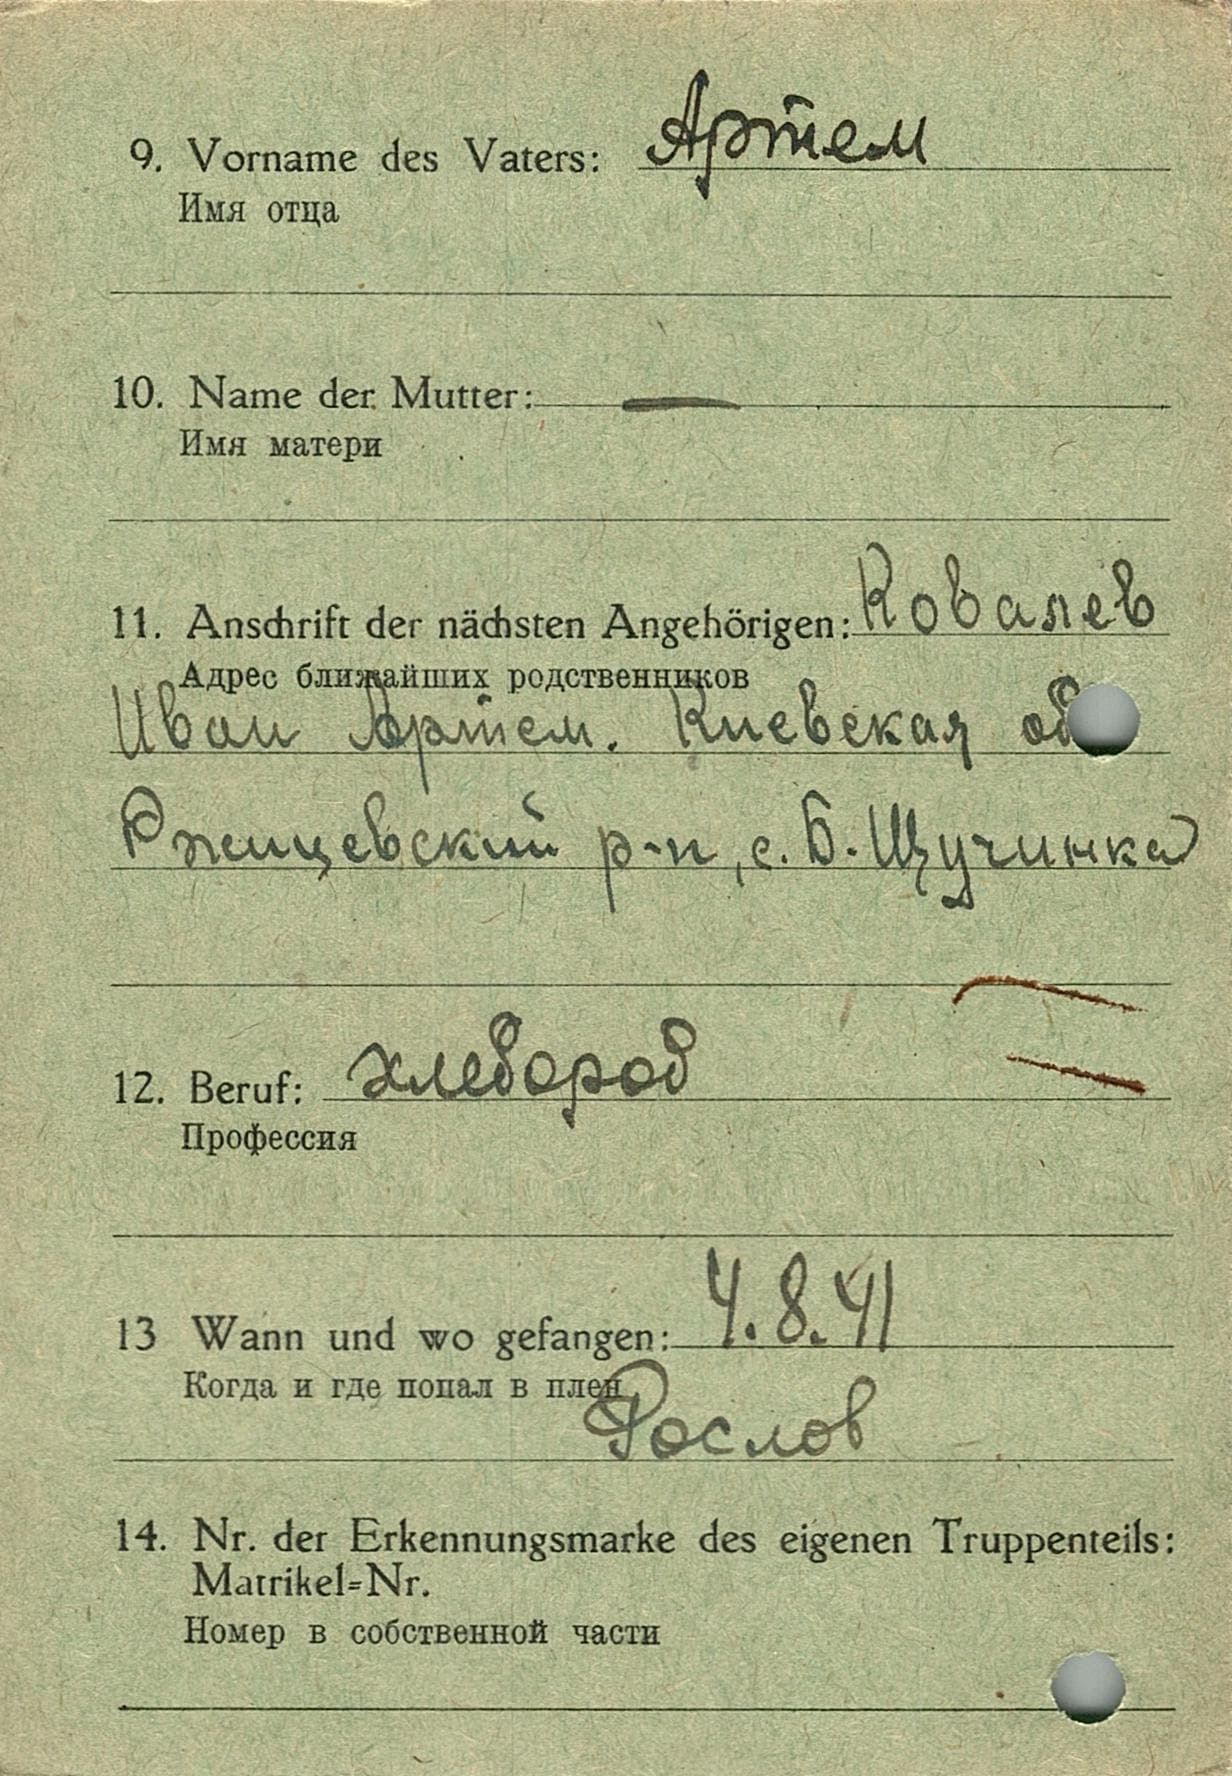 9. Vorname des Vaters: Артем
Имя отца
10. Name der Mutter: —
Имя матери
11. Anschrift der nächsten Angehörigen: Ковалев
Адрес ближайших родственников
Иван Артем. Киевская об
Ржищевский р-н, с. Б. Щучинка
12. Beruf: хлебороб
Профессия
13 Wann und wo gefangen: 4.8.41
Когда и где попал в плен
Рослов
14. Nr. der Erkennungsmarke des eigenen Truppenteils:
Matrikel=Nr.
Номер в собственной части